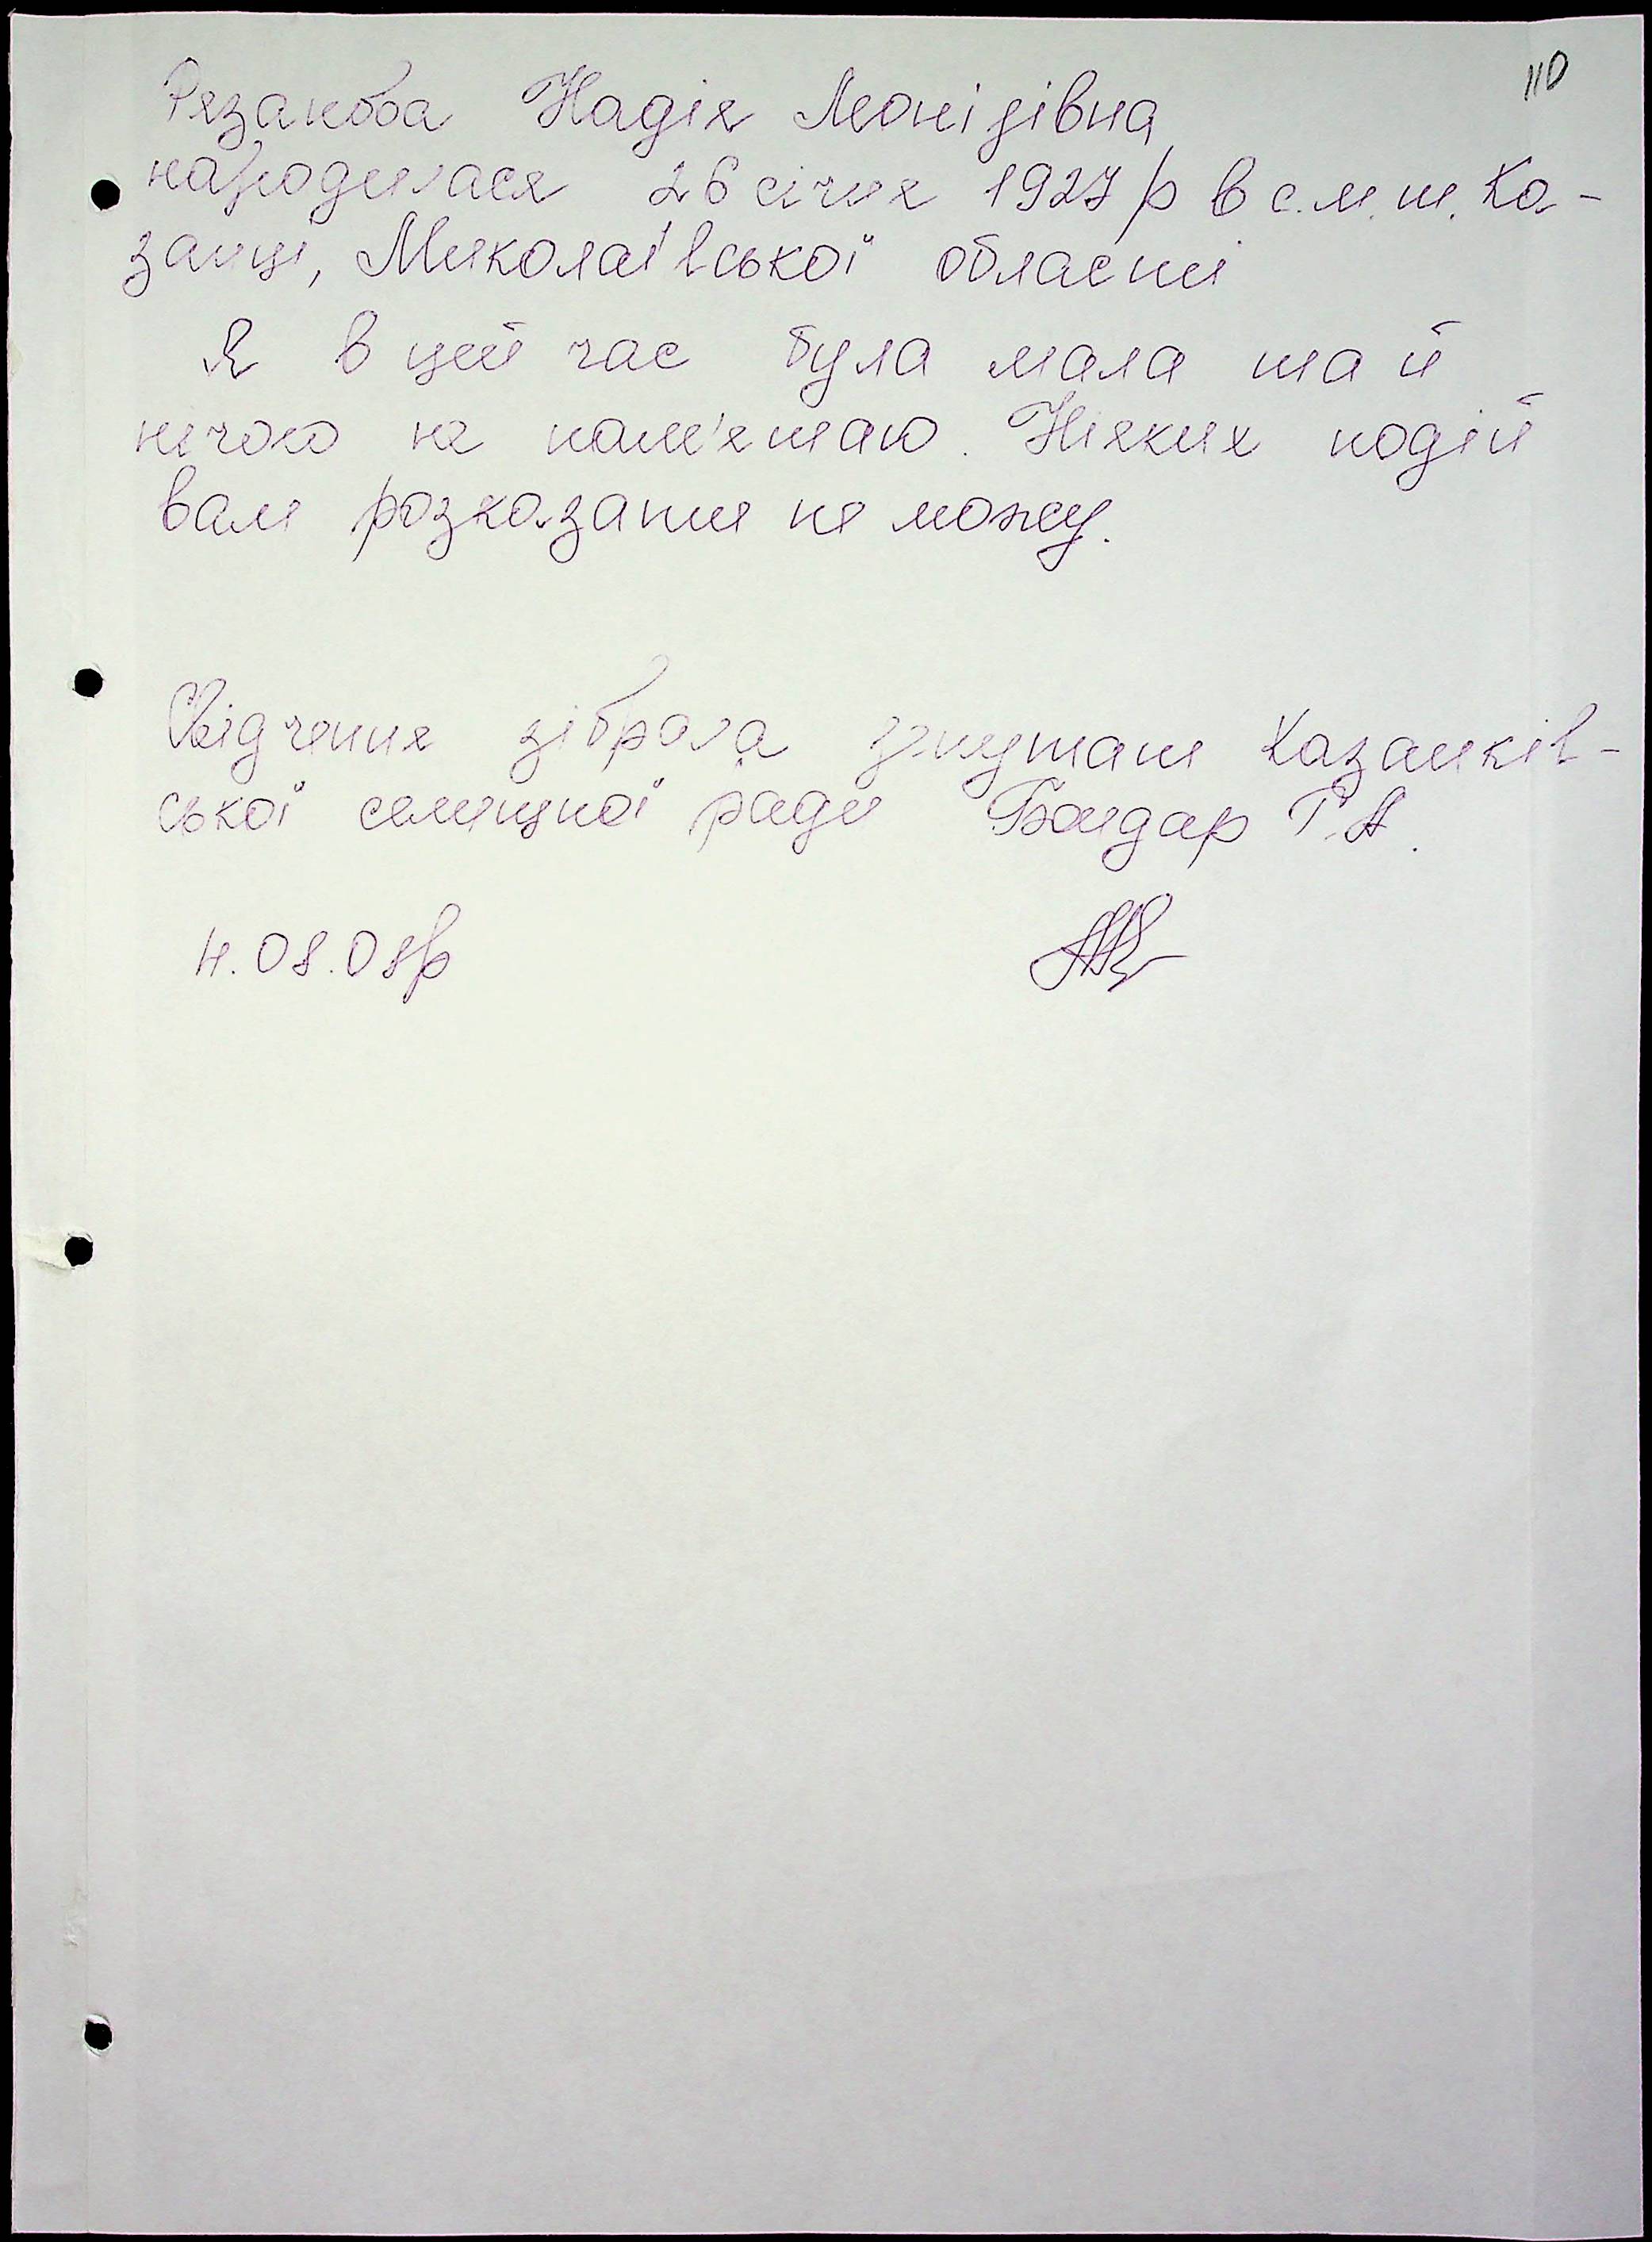 110
Рязанова Надія Леонідівна
народилася 26 січня 1927 р в с.м.т. Ка-
занці, Миколаївської області
Я в цей час була мала та й
нечого не пам'ятаю. Ніяких подій
вам розказати не можу.
Свідчення зібрала депутат Казанків-
ської селищної ради Бондар Г.А.
08.08р